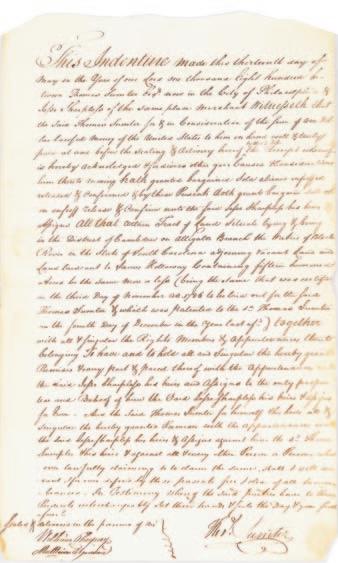 This Indenture made this thirteenth day of
May in the Year of our Lord one thousand Eight hundred be-
tween Thomas Sumter Esqr. now in the City of Philadelphia &
Jesse Sharpless of the same place Merchant Witnesseth that
the said Thomas Sumter for & in Consideration of the sum of one Dol-
lar Lawful Money of the United States to him in hand well & truly
paid at and before the Sealing & delivery hereof the Receipt whereof
is hereby acknowledged & for divers other good Causes & Considerations
him thereto moving Hath granted bargained Sold aliened enfeoffed
released & Confirmed & by these Presents doth grant bargain Sell
enfeoff release & Confirm unto the said Jesse Sharpless his heirs &
Assigns All that certain Tract of Land Situate lying & being
in the District of Camden on Alligator Branch the Waters of Black
River in the State of South Carolina adjoining vacant Land and
Land laid out to James Holloway Containing fifteen hundred
Acres be the same more or less (being the same that was certified
on the third Day of November 1786 to be laid out for the said
Thomas Sumter & which was Patented to the sd. Thomas Sumter
on the fourth Day of December in the Year last afsd.) together
with all & singular the Rights Members & Appurtenances thereto
belonging To have and to hold all and Singular the hereby granted
Premises & every part & parcel thereof with the Appurtenances unto
the said Jesse Sharpless his heirs and Assigns to the only proper
use and Behoof of him the said Jesse Sharpless his heirs & assigns
for Ever. And the said Thomas Sumter for himself his heirs all &
Singular the hereby granted Premises with the Appurtenances unto
the said Jesse Sharpless his heirs & Assigns against him the sd. Thomas
Sumpter his heirs & against all & every other Person or Persons whom
soever lawfully claiming or to claim the same, shall & will war-
rant & forever
In Testimony whereof the said parties have to these
Presents interchangeably set their hands & seals the Day & year first
Sealed & delivered in the presence of us
Thos. Sumter
William
Matthew